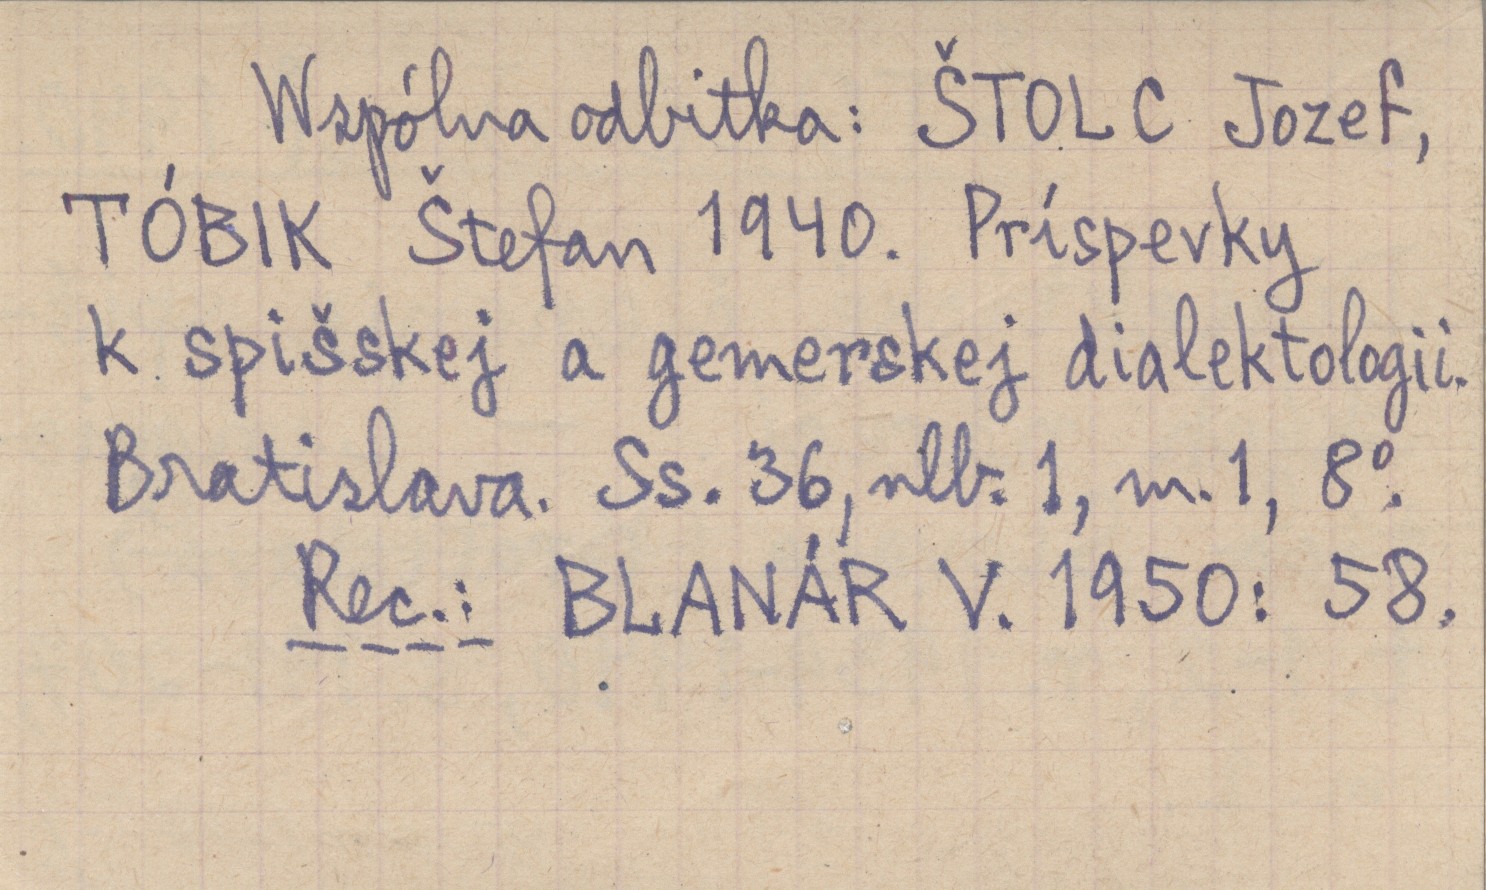 Wspólna odbitka: ŠTOLC Jozef,
TÓBIK Štefan 1940. Príspevky
k spišskej a gemerskej dialektologii.
Bratislava. Ss. 36, nlb. 1, m. 1, 8°.
Rec.: BLANÁR V. 1950: 58.